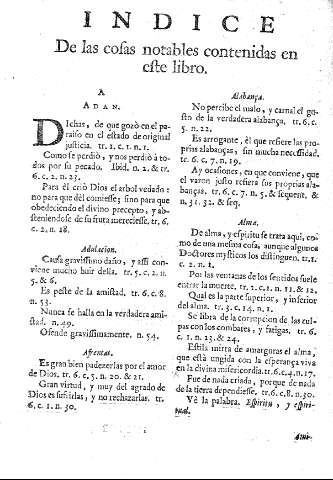 INDICE
De las cosas notables contenidas en
este libro.
A
ADAN.
DIchas, de que gozò en el pa-
raiso en el estado de original
justicia. tr. 1. c. 1. n. 1.
Como se perdiò, y nos perdiò à to-
dos por su pecado. Ibid. n. 2. & tr.
6. c. 2. n. 23.
Para èl criò Dios el arbol vedado:
no para que dèl comiesse; sino para que
obedeciendo el divino precepto, y abs-
teniendose de su fruta mereciesse. tr. 6.
c. 2. n. 28.
Adulacion.
Causa gravissimo daño, y assi con-
viene mucho huir della. tr. 5. c. 2. n.
5. & 6.
Es peste de la amistad. tr. 6. c. 8.
n. 53.
Nunca se halla en la verdadera ami-
stad. n. 49.
Ofende gravissimamente. n. 54.
Afrentas.
Es gran bien padezerlas por el amor
de Dios. tr. 6. c. 5. n. 20. & 21.
Gran virtud, y muy del agrado de
Dios es sufrirlas, y no rechazarlas. tr.
6. c. 1. n. 30.
Alabança.
No percibe el malo, y carnal el gu-
sto de la verdadera alabança. tr. 6. c.
5. n. 22.
Es arrogante, èl que refiere las pro-
prias alabanças, sin mucha necessidad.
tr. 6. c. 7. n. 19.
Ay ocasiones, en que conviene, que
el varon justo refiera sus proprias ala-
banças. tr. 6. c. 7. n. 5. & sequent. &
n. 31. 32. & seq.
Alma.
De alma, y espiritu se trata aqui, co-
mo de una mesma cosa, aunque algunos
Doctores mysticos los distinguen. tr. 1.
c. 2. n. 1.
Por las ventanas de los sentidos suele
entrar la muerte. tr. 2. c. 1. n. 11. & 12.
Qual es la parte superior, y inferior
del alma. tr. 3. c. 14. n. 1.
Se libra de la corrupcion de las cul-
pas con los combates, y fatigas. tr. 6.
c. 1. n. 23. & 24.
Es tila mirta de amarguras el alma,
que està ungida con la esperança viva
en la divina misericordia. tr. 6. c. 4. n. 17.
Fue de nada criada, porque de nada
de la tierra dependiesse. tr. 6. c. 8. n. 30.
Vè la palabra. Espiritu, y espiri-
tual.